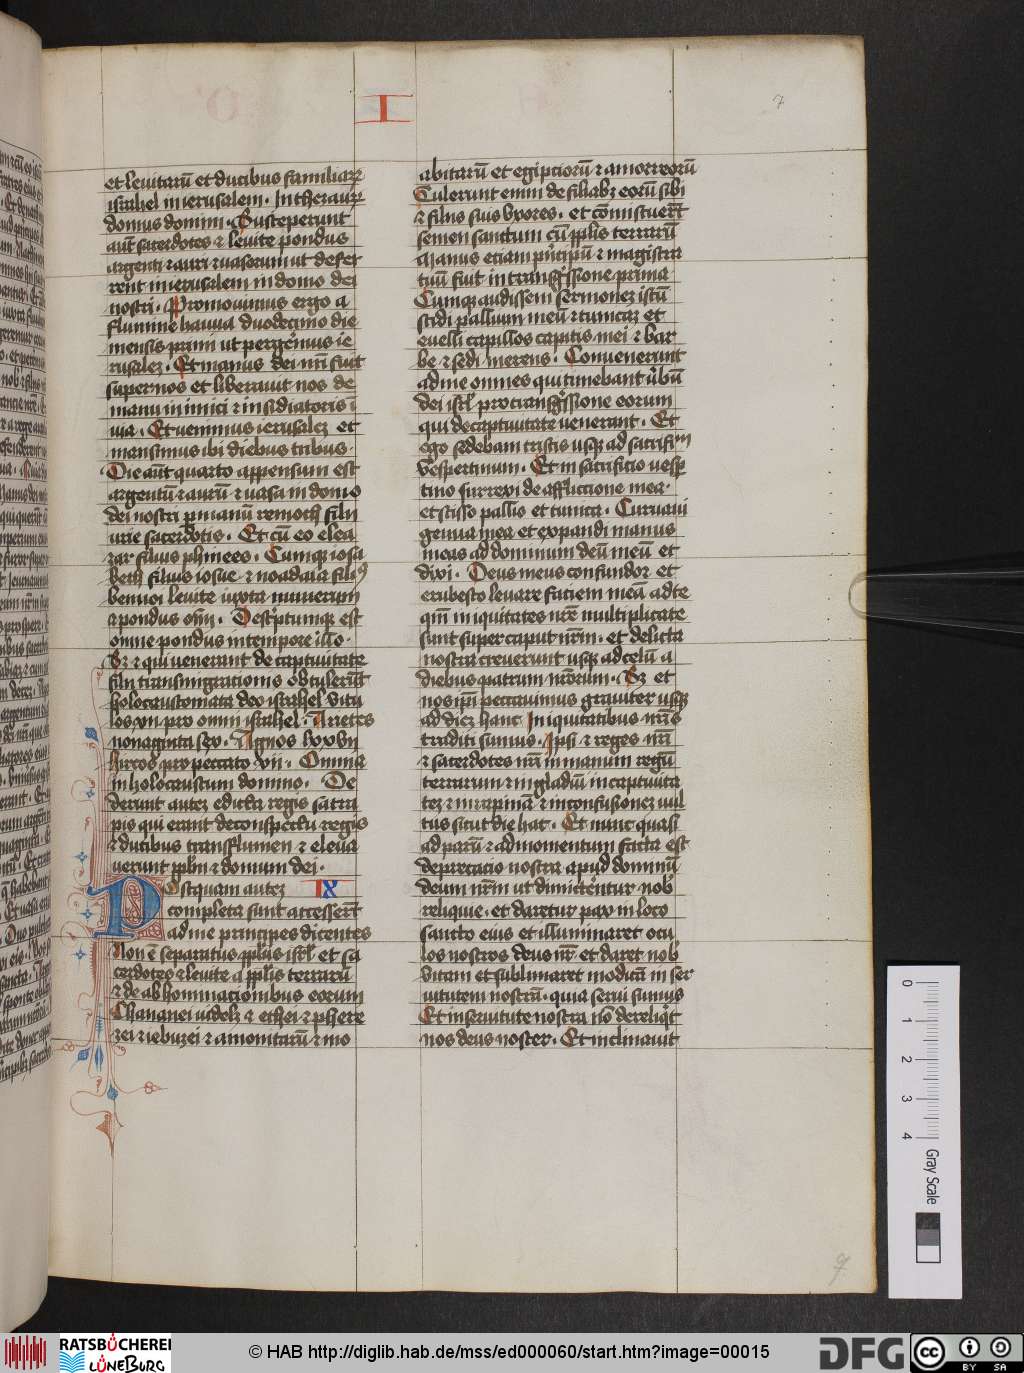 I
7
et levitarū et ducibus familiaꝝ
israhel in ierusalem. In thesauꝝ
domus domini. Susceperunt
aūt sacerdotes ⁊ levite pondus
argenti ⁊ auri ⁊ vasorum ut defer
rent in ierusalem in domo dei
nostri. Promovimus ergo a
flumine hauua duodecimo die
mensis primi ut pergemus ie
rusalez. Et manus dei nr̄i fuit
super nos et liberavit nos de
manu in imici ⁊ insidiatoris ī
via. Et venimus ierusalez et
mansimus ibi diebus tribus.
Die aūt quarto appensum est
argentū ⁊ aurū ⁊ vasa in domo
dei nostri p manū remoth filii
urie sacerdotis. Et cū eo elea
zar filius phinees. Cumqz iosa
beth filius iosue ⁊ noadaia filiꝰ
bennoi levite iuxta numerum
⁊ pondus om̄. Descriptumqz est
omne pondus in tempore illo.
Sz ⁊ qui venerant de captivitate
filii transmigrationis obtulerūt
holocaustomata deo israhel vitu
los xii pro omni israhel. Arietes
nonaginta sex. Agnos lxxvii
hircos pro peccato xii. Omnia
in holocaustum domino. De
derunt autez edicta regis satra
pis qui erant de conspectu regis
⁊ ducibus trans flumen ⁊ eleva
verunt pplm ⁊ domum dei.
Postquam autez IX
completa sunt accesserūt
ad me principes dicentes
Non ē separatus pplus isrl̄ et sa
cerdotes ⁊ levite a pplis terrarū
⁊ de abhominacionibus eorum
Chananei videlz ⁊ ethei ⁊ phere
zei ⁊ iebuzei ⁊ amonitarū ⁊ mo
abitarū et egiptiorū ⁊ amorreorū
Tulerunt enim de filiabz eorū sibi
⁊ filiis suis uxores. et cōmiscuerūt
semen sanctum cū pplis terrarū
Manus etiam principū ⁊ magistra
tuū fuit in transgressione prima
Cumqz audissem sermonez istū
scidi pallium meū ⁊ tunicaz et
evelli capillos capitis mei ⁊ bar
be ⁊ sedi merens. Convenerunt
ad me omnes qui timebant ūbū
dei isrl̄ pro transgressione eorum
qui de captivitate venerant. Et
ego sedebam tristis usqz ad sacrifim̄
vespertinum. Et in sacrificio vesp
tino surrexi de affliccione mea.
et scisso pallio et tunica. Curvavi
genua mea et expandi manus
meas ad dominum deū meū et
dixi. Deus meus confundor et
erubesco levare faciem meā ad te
qm̄ iniquitates nr̄e multiplicate
sunt super caput nr̄m. et delicta
nostra creverunt usqz ad celū a
diebus patrum nr̄orum. Sz et
nos ip̄i peccavimus graviter usqz
ad diez hanc In iquitatibus nr̄is
traditi sumus. Ipsi ⁊ reges nr̄i
⁊ sacerdotes nr̄i in manum regū
terrarum ⁊ in gladiū in captivita
tez ⁊ in rapinā ⁊ in confusionez vul
tus sicut die hac. Et nunc quasi
ad parū ⁊ ad momentum facta est
deprecacio nostra apud dominū
deum nr̄m ut dimicterentur nob̄
reliquie. et daretur pax in loco
sancto eius et illuminaret ocu
los nostros deus nr̄ et daret nob̄
vitam et sublimaret modicū in ser
vitutem nostrū. quia servi sumus
Et in servitute nostra nō dereliqt
nos deus noster. Et inclinavit
0 1 2 3 4
Gray Scale
RATSBÜCHEREI
LÜNEBURG
© HAB http://diglib.hab.de/mss/ed000060/start.htm?image=00015
DFG
cc BY SA